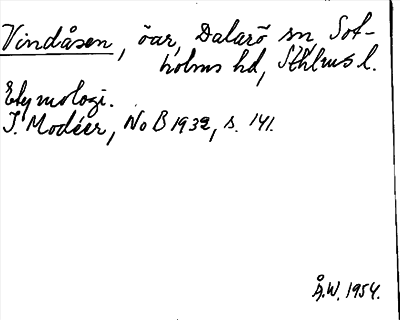 Vindåsen, öar, Dalarö sn, Sot-
holms hd, Sthlms l.
Etymologi.
I. Modéer, NoB 1932, s. 141.
Å.W. 1954.